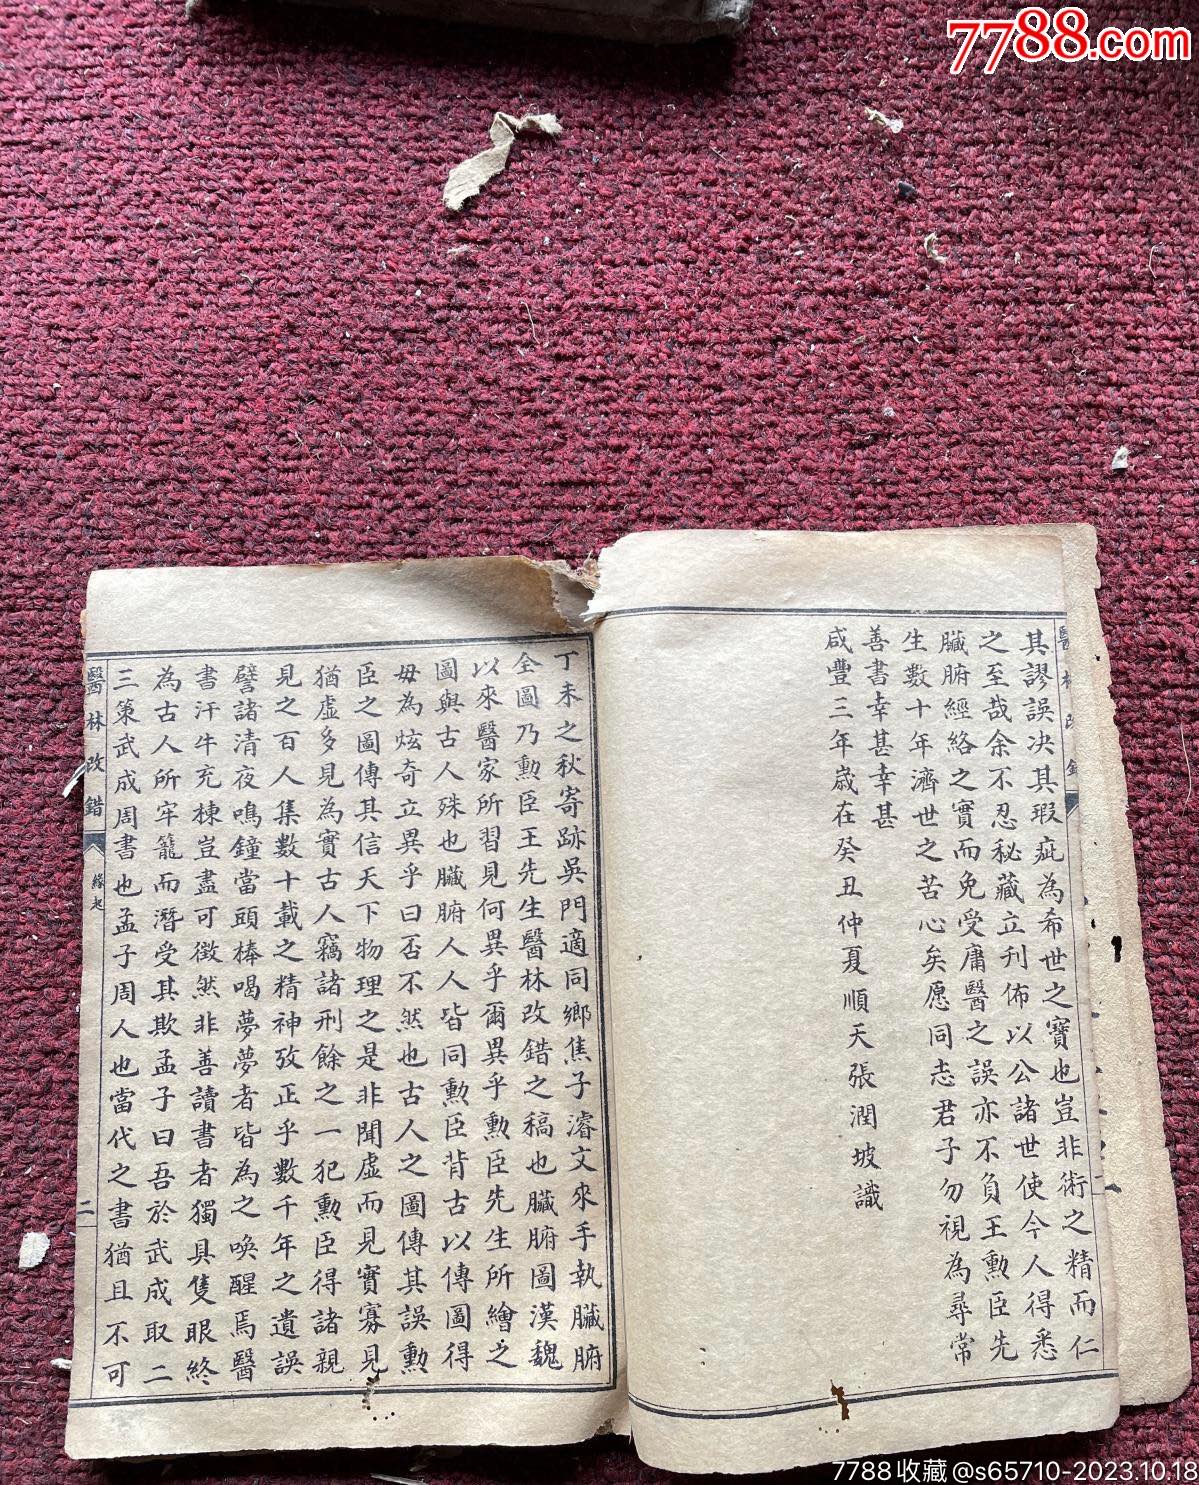 7788.com
醫林改錯
其謬誤决其瑕疵為希世之寶也豈非術之精而仁
之至哉余不忍秘藏立刋佈以公諸世使今人得悉
臟腑經絡之實而免受庸醫之誤亦不負王勲臣先
生數十年濟世之苦心矣愿同志君子勿視為尋常
善書幸甚幸甚
咸豐三年歲在癸丑仲夏順天張潤坡識
丁未之秋寄跡吳門適同鄉焦子濬文來手執臟腑
全圖乃勲臣王先生醫林改錯之稿也臟腑圖漢魏
以來醫家所習見何異乎爾異乎勲臣先生所繪之
圖與古人殊也臟腑人人皆同勲臣背古以傳圖得
毋為炫奇立異乎曰否不然也古人之圖傳其誤勲
臣之圖傳其信天下物理之是非聞虛而見實寡見
猶虛多見為實古人竊諸刑餘之一犯勲臣得諸親
見之百人集數十載之精神攷正乎數千年之遺誤
譬諸清夜鳴鐘當頭棒喝夢夢者皆為之喚醒焉醫
書汗牛充棟豈盡可徵然非善讀書者獨具隻眼終
為古人所牢籠而潛受其欺孟子曰吾於武成取二
三策武成周書也孟子周人也當代之書猶且不可
醫林改錯
緣起
二
7788收藏@s65710-2023.10.18